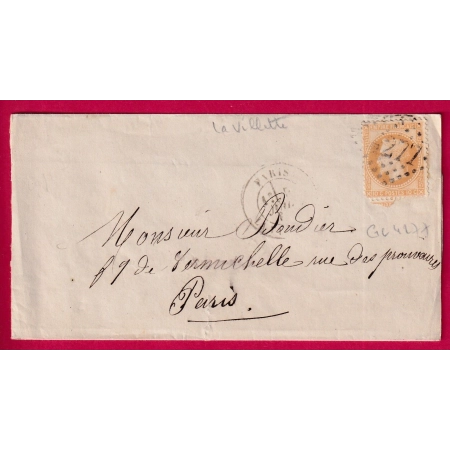 La Villette
PARIS
Monsieur Boudier
de Vermichelle rue des prouvaires
Paris.